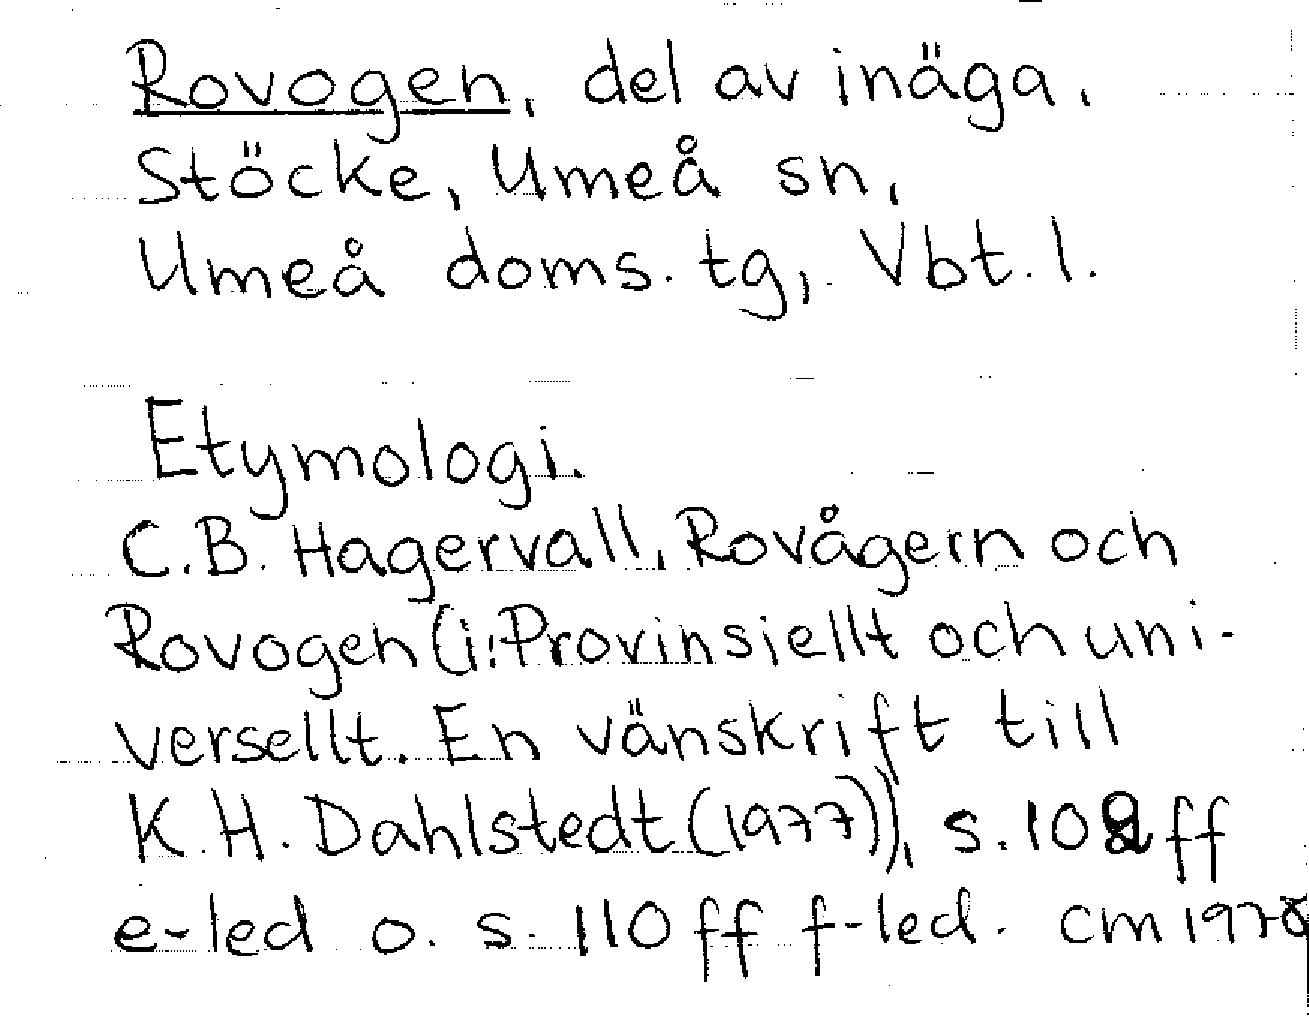 Rovogen, del av inäga,
Stöcke, Umeå sn,
Umeå doms. tg, Vbt. l.
Etymologi.
C.B. Hagervall, Rovågern och
Rovogen (i: Provinsiellt och uni-
versellt. En vänskrift till
K.H. Dahlstedt (1977)), s. 102 ff
e-led o. s. 110 ff f-led. CM 1978